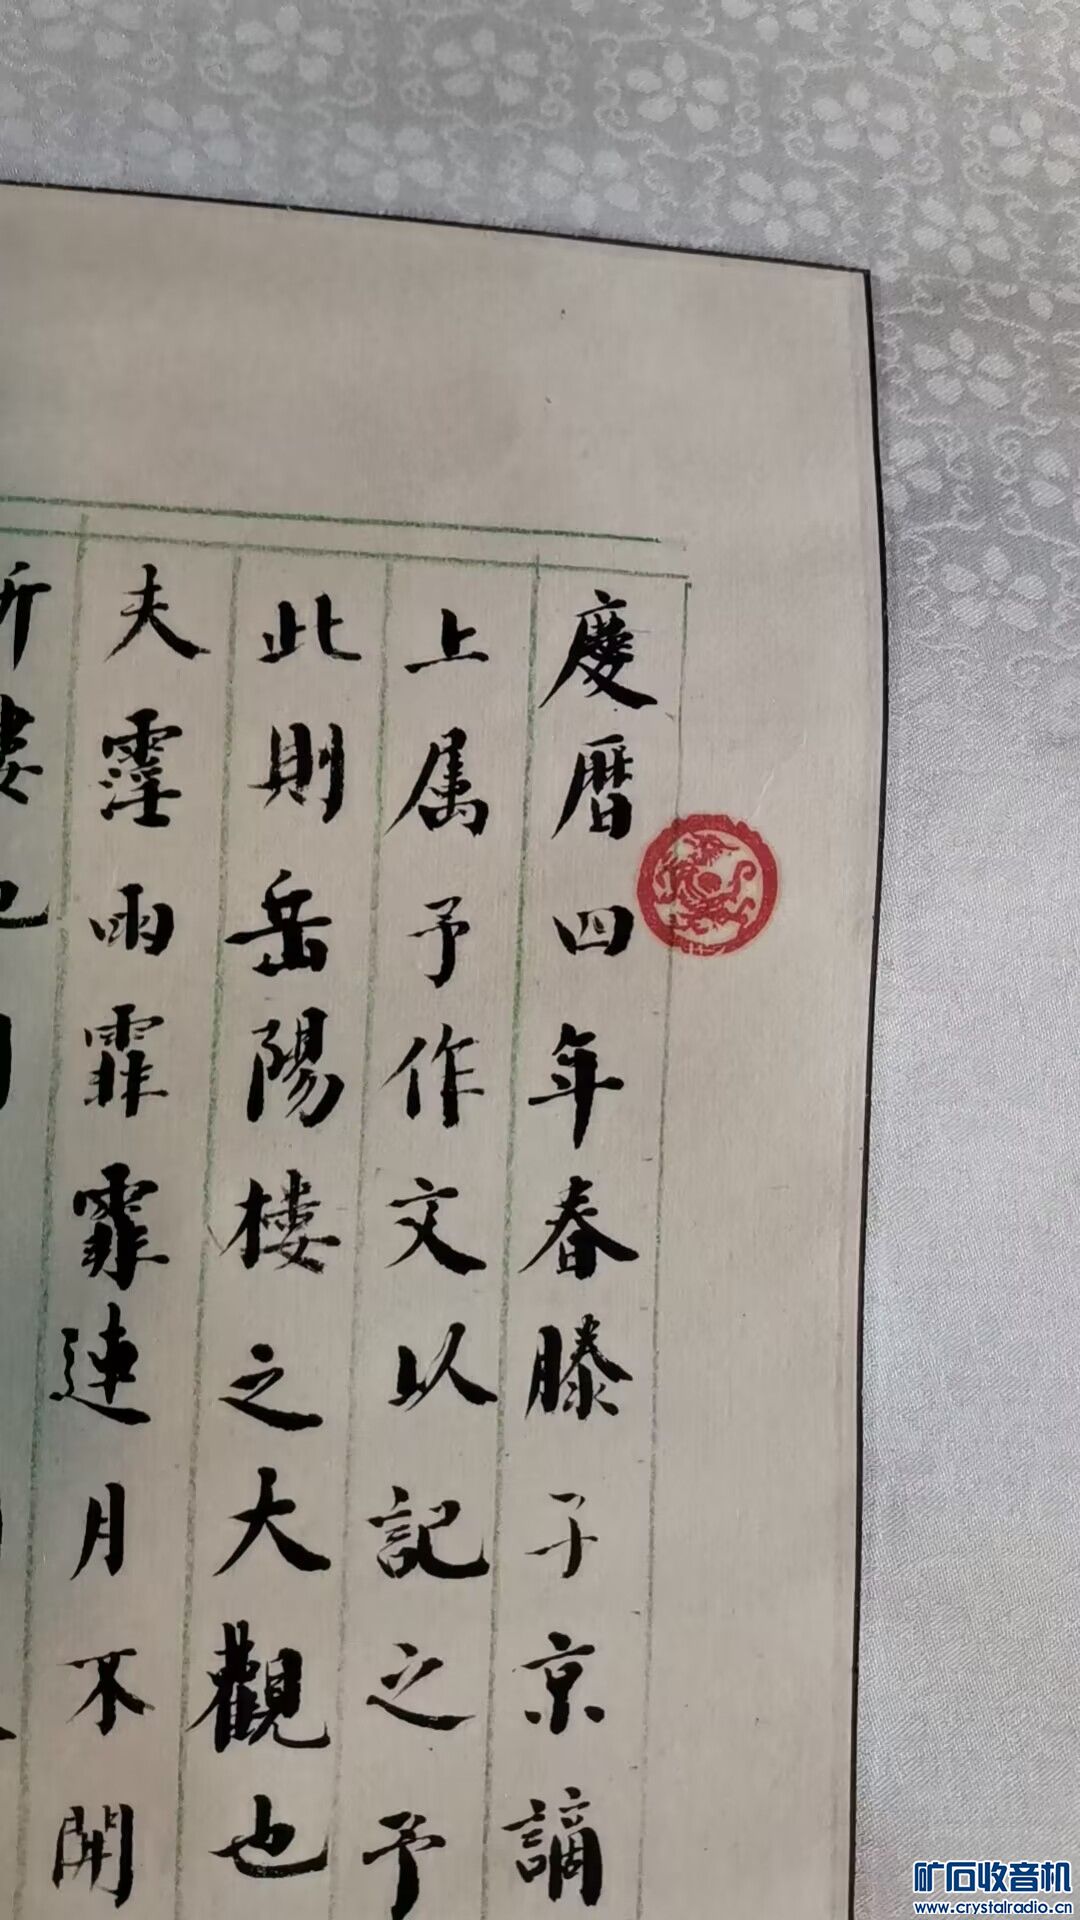 慶曆四年春滕子京謫
上属予作文以記之予
此則岳陽樓之大觀也
夫霪雨霏霏連月不開
矿石收音机
www.crystalradio.cn